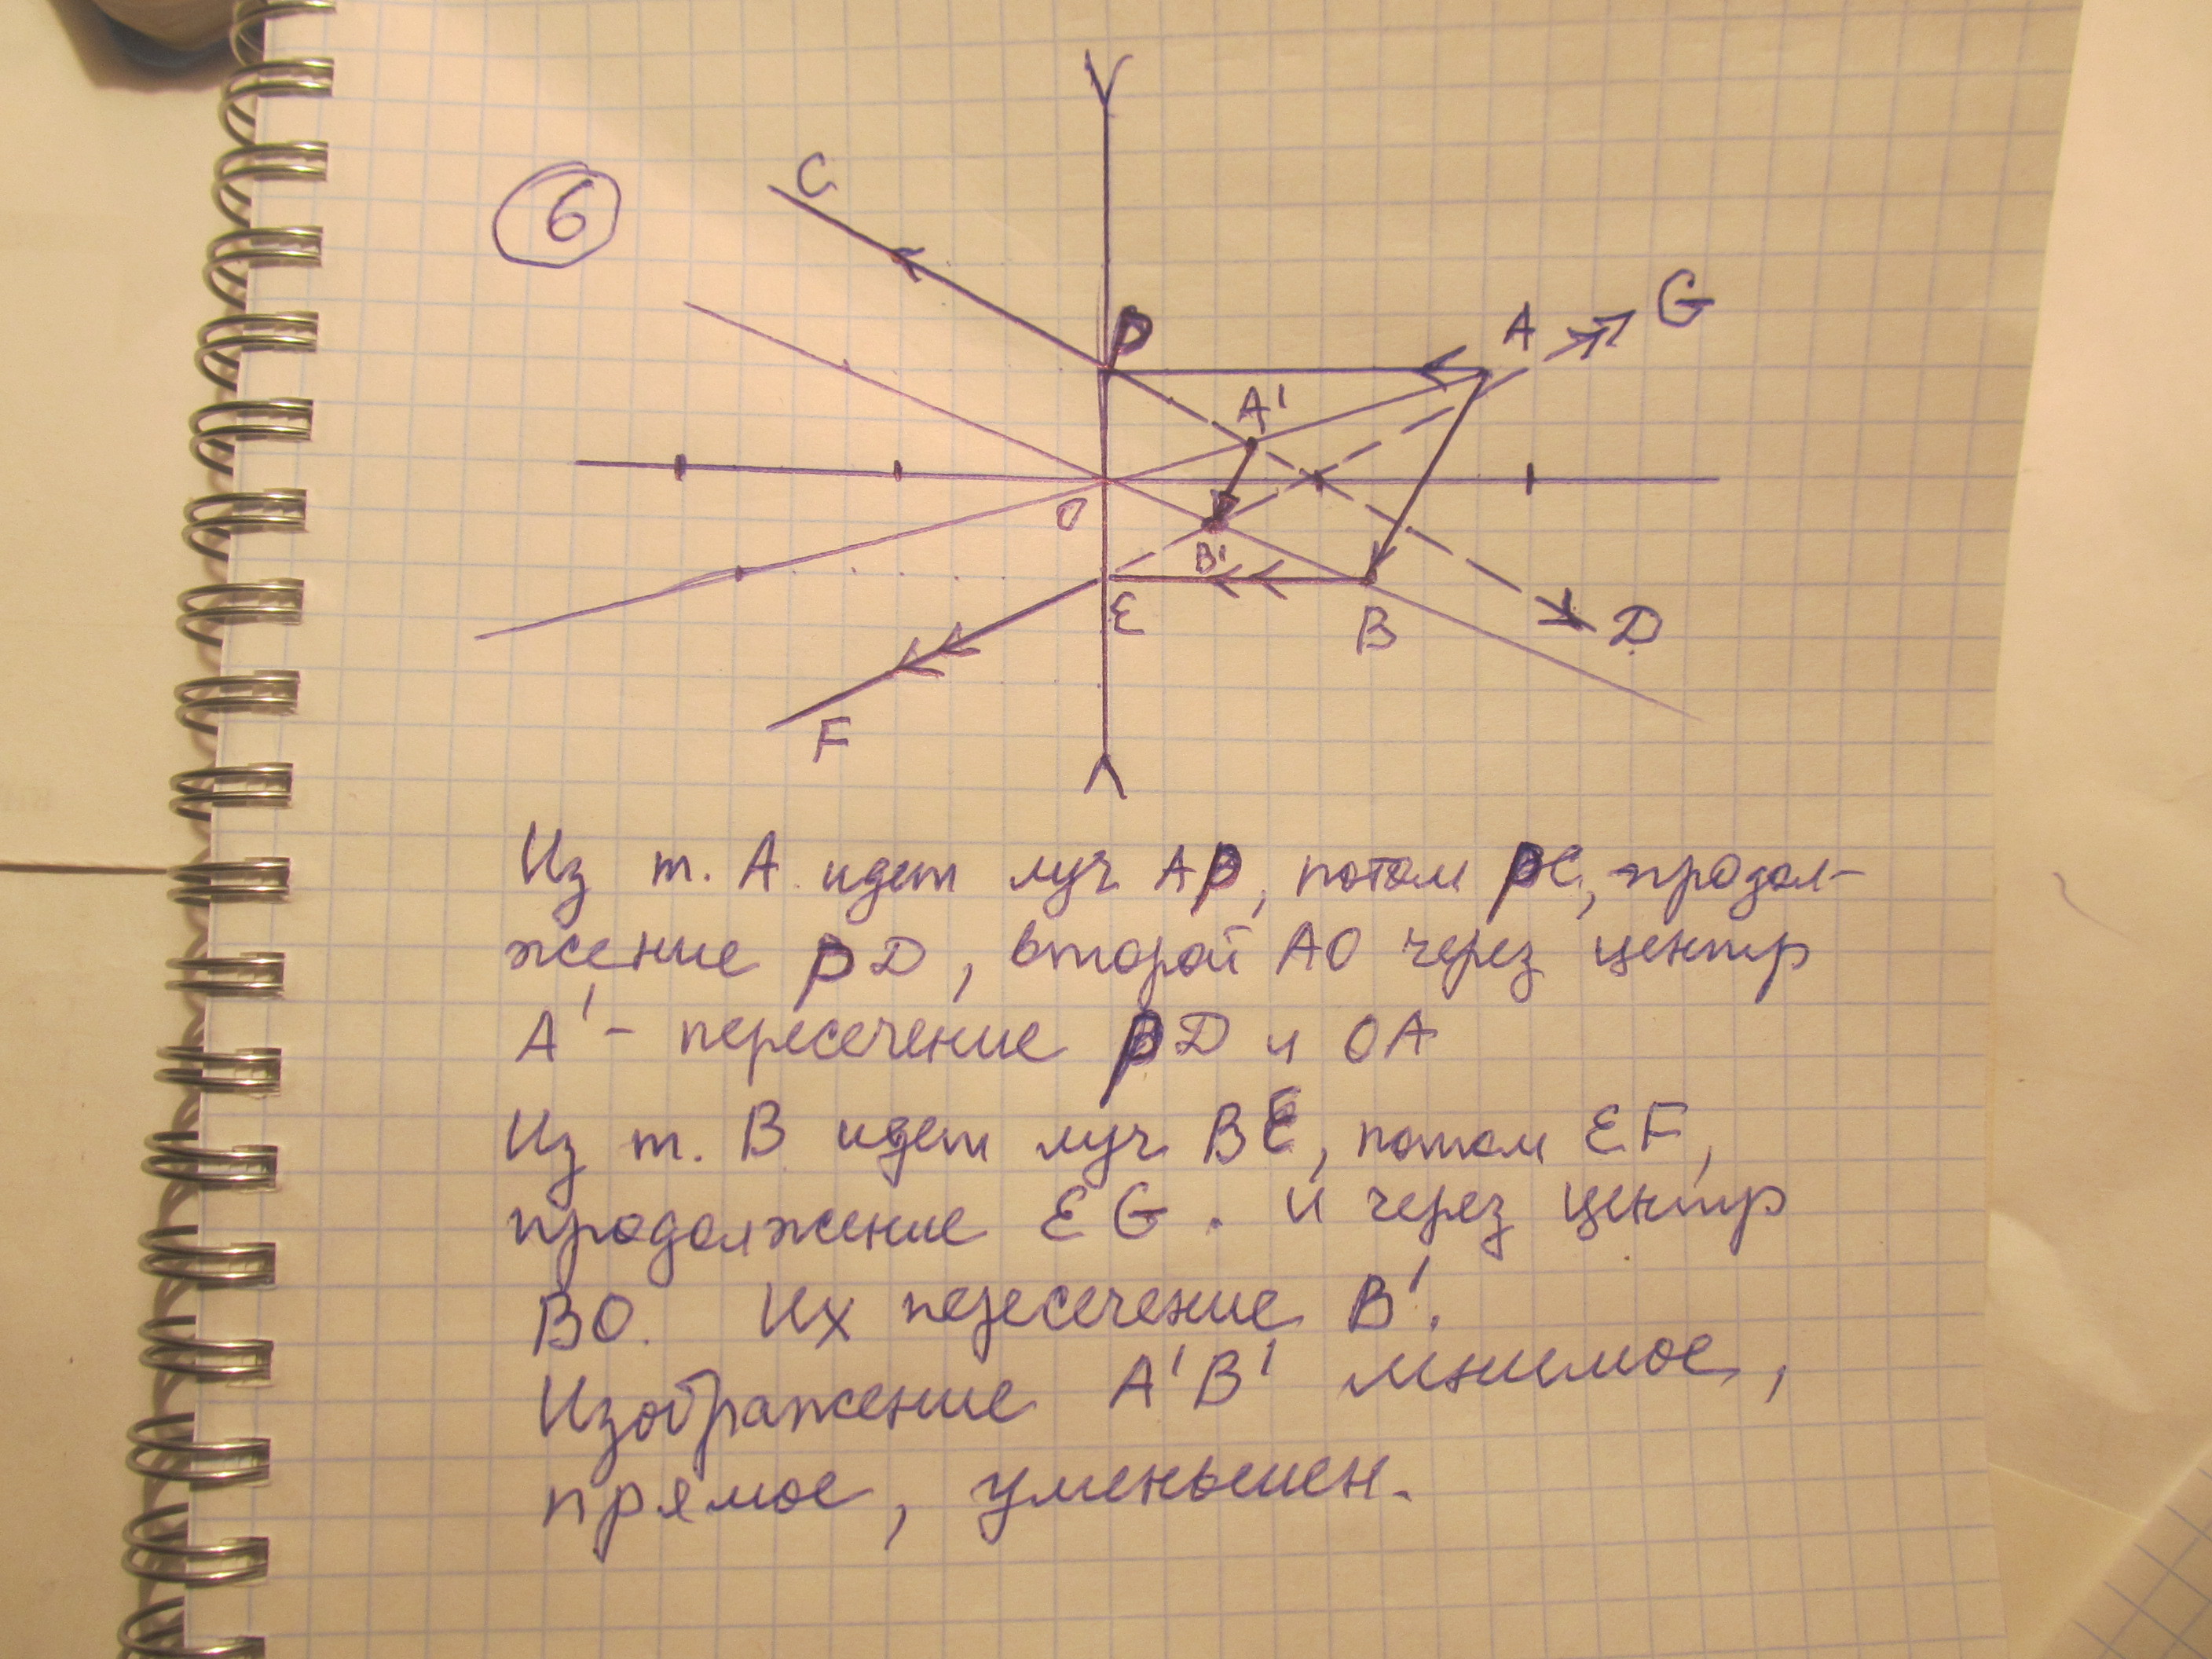 6
C
P
A
G
A'
O
B'
E
B
D
F
Из т. А идет луч АР, потом РС, продол-
жение РD, второй АО через центр
А' - пересечение РD и ОА
Из т. В идет луч ВЕ, потом EF,
продолжение EG. и через центр
ВО. Их пересечение В'.
Изображение А'В' мнимое,
прямое, уменьшен.